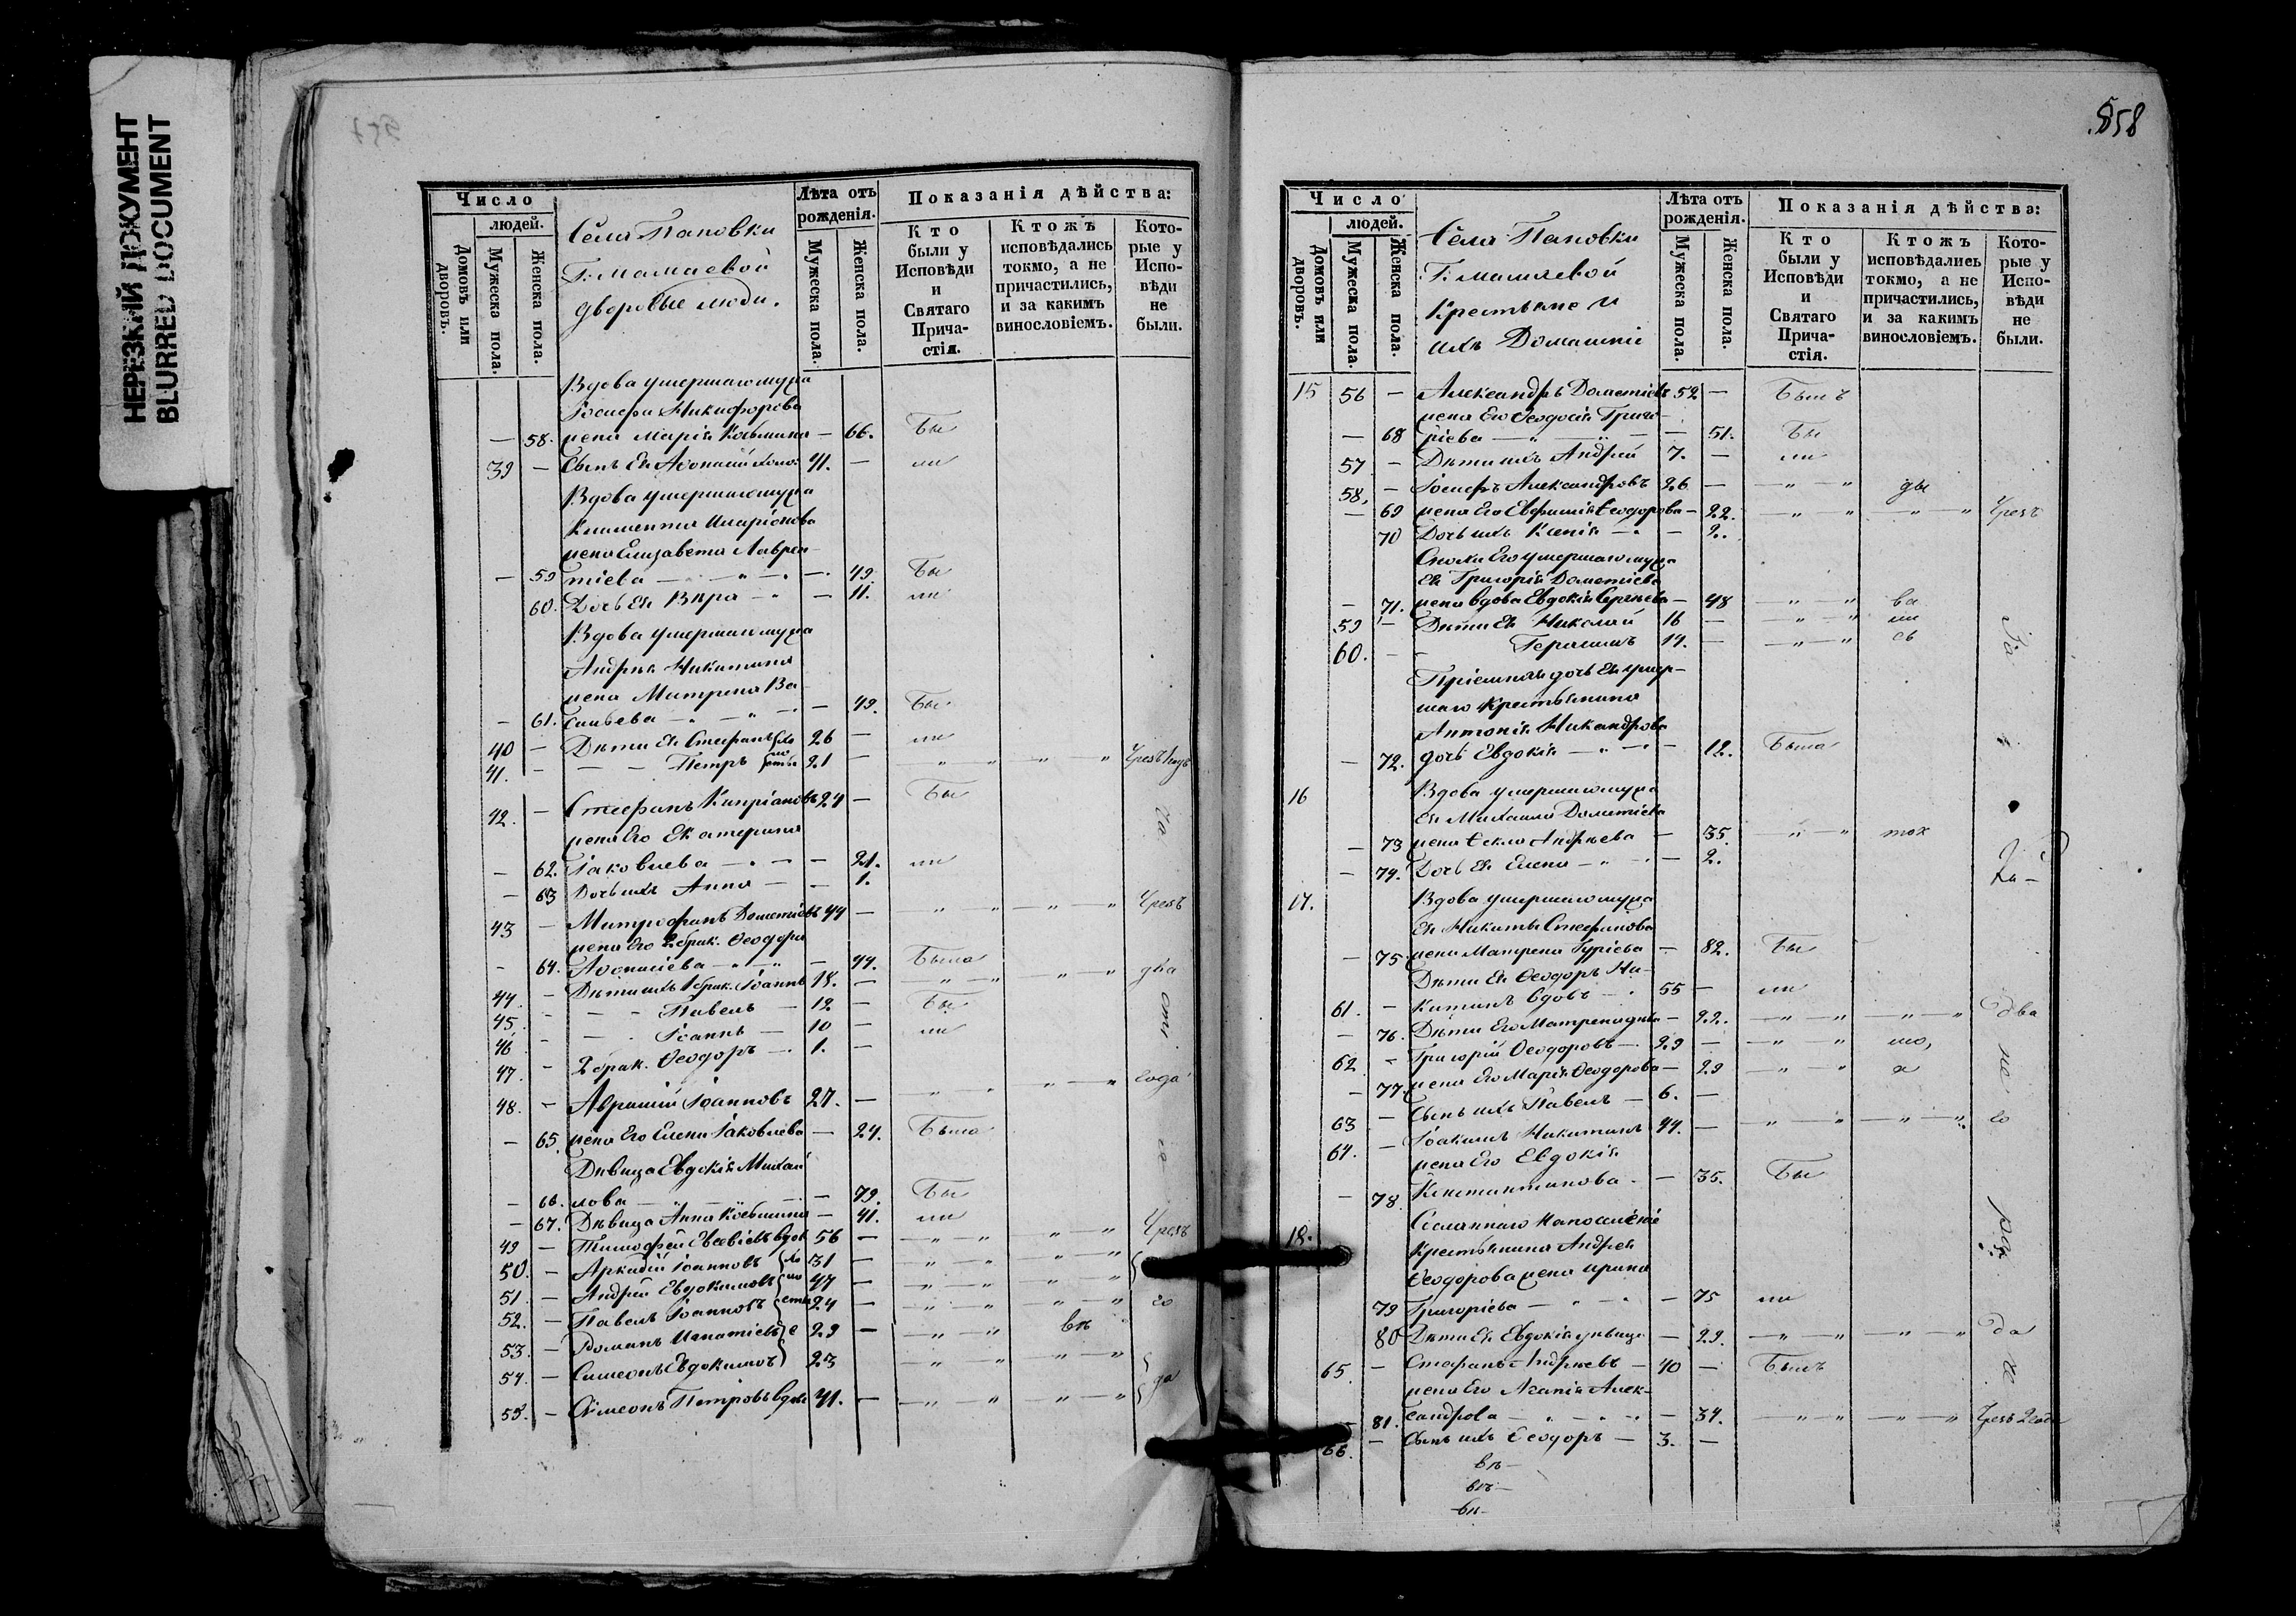 НЕРЕЗКИЙ ДОКУМЕНТ
BLURRED DOCUMENT
557
Число
людей.
Домовъ или дворовъ.
Мужеска пола.
Женска пола.
Села Пановки
Г: Мамаевой
дворовые люди.
Лѣта отъ рожденія.
Мужеска пола.
Женска пола.
Показанія дѣйства:
Кто были у Исповѣди и Святаго Прича-стія.
Ктожъ исповѣдались токмо, а не причастились, и за какимъ винословіемъ.
Кото-рые у Испо-вѣди не были.
Вдова умершаго мужа
Іосифа Никифорова
— 58. жена Марія Козьмина — 66. Бы
39 — Сынъ Ея Аѳонасій холос: 41. — ли
Вдова умершаго мужа
Климента Иларіонова
жена Елизавета Лаврен-
— 59 тіева — " — — 49. Бы
60. Дочь Ея Вѣра — " — 11. ли
Вдова умершаго мужа
Андрея Никитина
жена Матрена Ва-
— 61. сильева — " — " — — 49. Бы
40 — Дѣти Ея Стефанъ 26 — ли
41. — — — Петръ 21 — — " — " — " Чрезъ
42. — Стефанъ Кипріановъ 24 — Бы
жена Его Екатерина
— 62. Іаковлева — " — — 21. ли
— 63 Дочь ихъ Анна — — 1.
43 — Митрофанъ Дометіевъ 44 — — " — " — " — " Чрезъ
жена Его 2 брак. Ѳеодора
— 64. Аѳонасіева — " — " — 44. Была
44. — Дѣти ихъ 1 брак. Іоаннъ 18. — — " — " — " — " два
45. — — — Павелъ — 12 — Бы
46 — — Іоаннъ — 10 — ли
47. — 2 брак. Ѳеодоръ — 1. —
48. — Аврамій Іоанновъ 27. — — " — " — " года
— 65. жена Его Елена Іаковлева — 24. Была
Дѣвица Евдокія Михай
— 66. лова — " — — 79. Бы
— 67. Дѣвица Анна Козьмина — 41. ли
49 — Тимофей Евсевіевъ вдов 56 — — " — " — " — " Чрезъ
50. — Аркадій Іоанновъ хо 31 — — " — " — " — "
51. — Андрей Евдокимовъ ло 47 — — " — " — " — "
52. — Павелъ Іоанновъ сты 24 — — " — " — " — " го
53. — Романъ Игнатіевъ е 29 — — " — " вѣ
54. — Симеонъ Евдокимовъ 23 — " — " — " — "
55. — Симеонъ Петровъ вдов 41. — — " — " — " — " да
858
Число
людей.
Домовъ или дворовъ.
Мужеска пола.
Женска пола.
Села Пановки
Г: Мамаевой
Крестьяне и
ихъ Домашніе
Лѣта отъ рожденія.
Мужеска пола.
Женска пола.
Показанія дѣйства:
Кто были у Исповѣди и Святаго Прича-стія.
Ктожъ исповѣдались токмо, а не причастились, и за какимъ винословіемъ.
Кото-рые у Испо-вѣди не были.
15 56 — Александръ Дометіевъ 52 — Былъ
жена Его Ѳеодосія Григо-
— 68 ріева — " — " — — 51. Бы
57 — Дѣти ихъ Андрей 7. — ли
58. — Іосифъ Александровъ 26 — — " — "
— 69 жена Его Евфимія Ѳеодорова — 22. — " — " — " — " Чрезъ
70 Дочь ихъ Ксенія — " — 2.
Снохи Его умершаго мужа
Ея Григорія Дометіева
— 71. жена вдова Евдокія Сергѣева — 48 — " — " ва
59 — Дѣти Ея Николай 16 — — " — " ли
60. — Герасимъ 14. — — " — " съ
Пріемная дочь Ея умер-
шаго крестьянина
Антонія Никандрова
— 72. дочь Евдокія — " — — 12. Была
16 Вдова умершаго мужа
Ея Михаила Дометіева
— 73 жена Ѳекла Андреева — 35. — " — " тож
— 74. Дочь Ея Елена — " — — 2.
17. Вдова умершаго мужа
Ея Никиты Стефанова
— 75 жена Матрена Гуріева — 82. Бы
Дѣти Ея Ѳеодоръ Ни-
61. — китинъ вдовъ — " 55 — ли
— 76. Дѣти Его Матрена дѣва — 22. — " — " — " — " два
62 — Григорій Ѳеодоровъ — 29 — — " — " мо,
— 77. жена Его Марія Ѳеодорова — 29 — " — " а
63 — Сынъ ихъ Павелъ — 6. —
64. — Іоакимъ Никитинъ 44. — — " — " — " — " го
жена Его Евдокія
— 78. Константинова — — 35. Бы
18. Сосланнаго на поселеніе
крестьянина Андрея
Ѳеодорова жена Ирина
79 Григоріева — " — " — 75 ли
80 Дѣти Ея Евдокія дѣвица — 29. — " — " — " — " да
65. — Стефанъ Андреевъ — 40 — Былъ
жена Его Агапія Алек-
— 81. сандрова — " — " — — 34. — " — " — " — " Чрезъ 2 года
66. — Сынъ ихъ Ѳеодоръ — 3. —